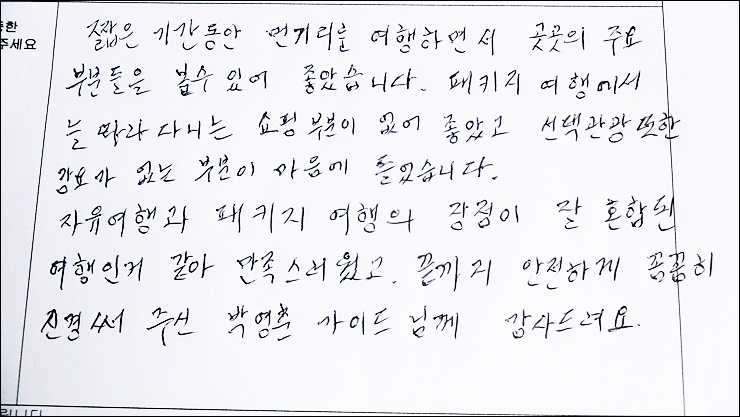 통한
주세요
짧은 기간동안 먼거리를 여행하면서 곳곳의 주요
부분들을 볼수 있어 좋았습니다. 패키지 여행에서
늘 따라다니는 쇼핑부분이 없어 좋았고 선택관광 또한
강요가 없는 부분이 마음에 들었습니다.
자유여행과 패키지 여행의 장점이 잘 혼합된
여행인거 같아 만족스러웠고. 끝까지 안전하게 꼼꼼히
신경써 주신 박영훈 가이드님께 감사드려요.
립니다